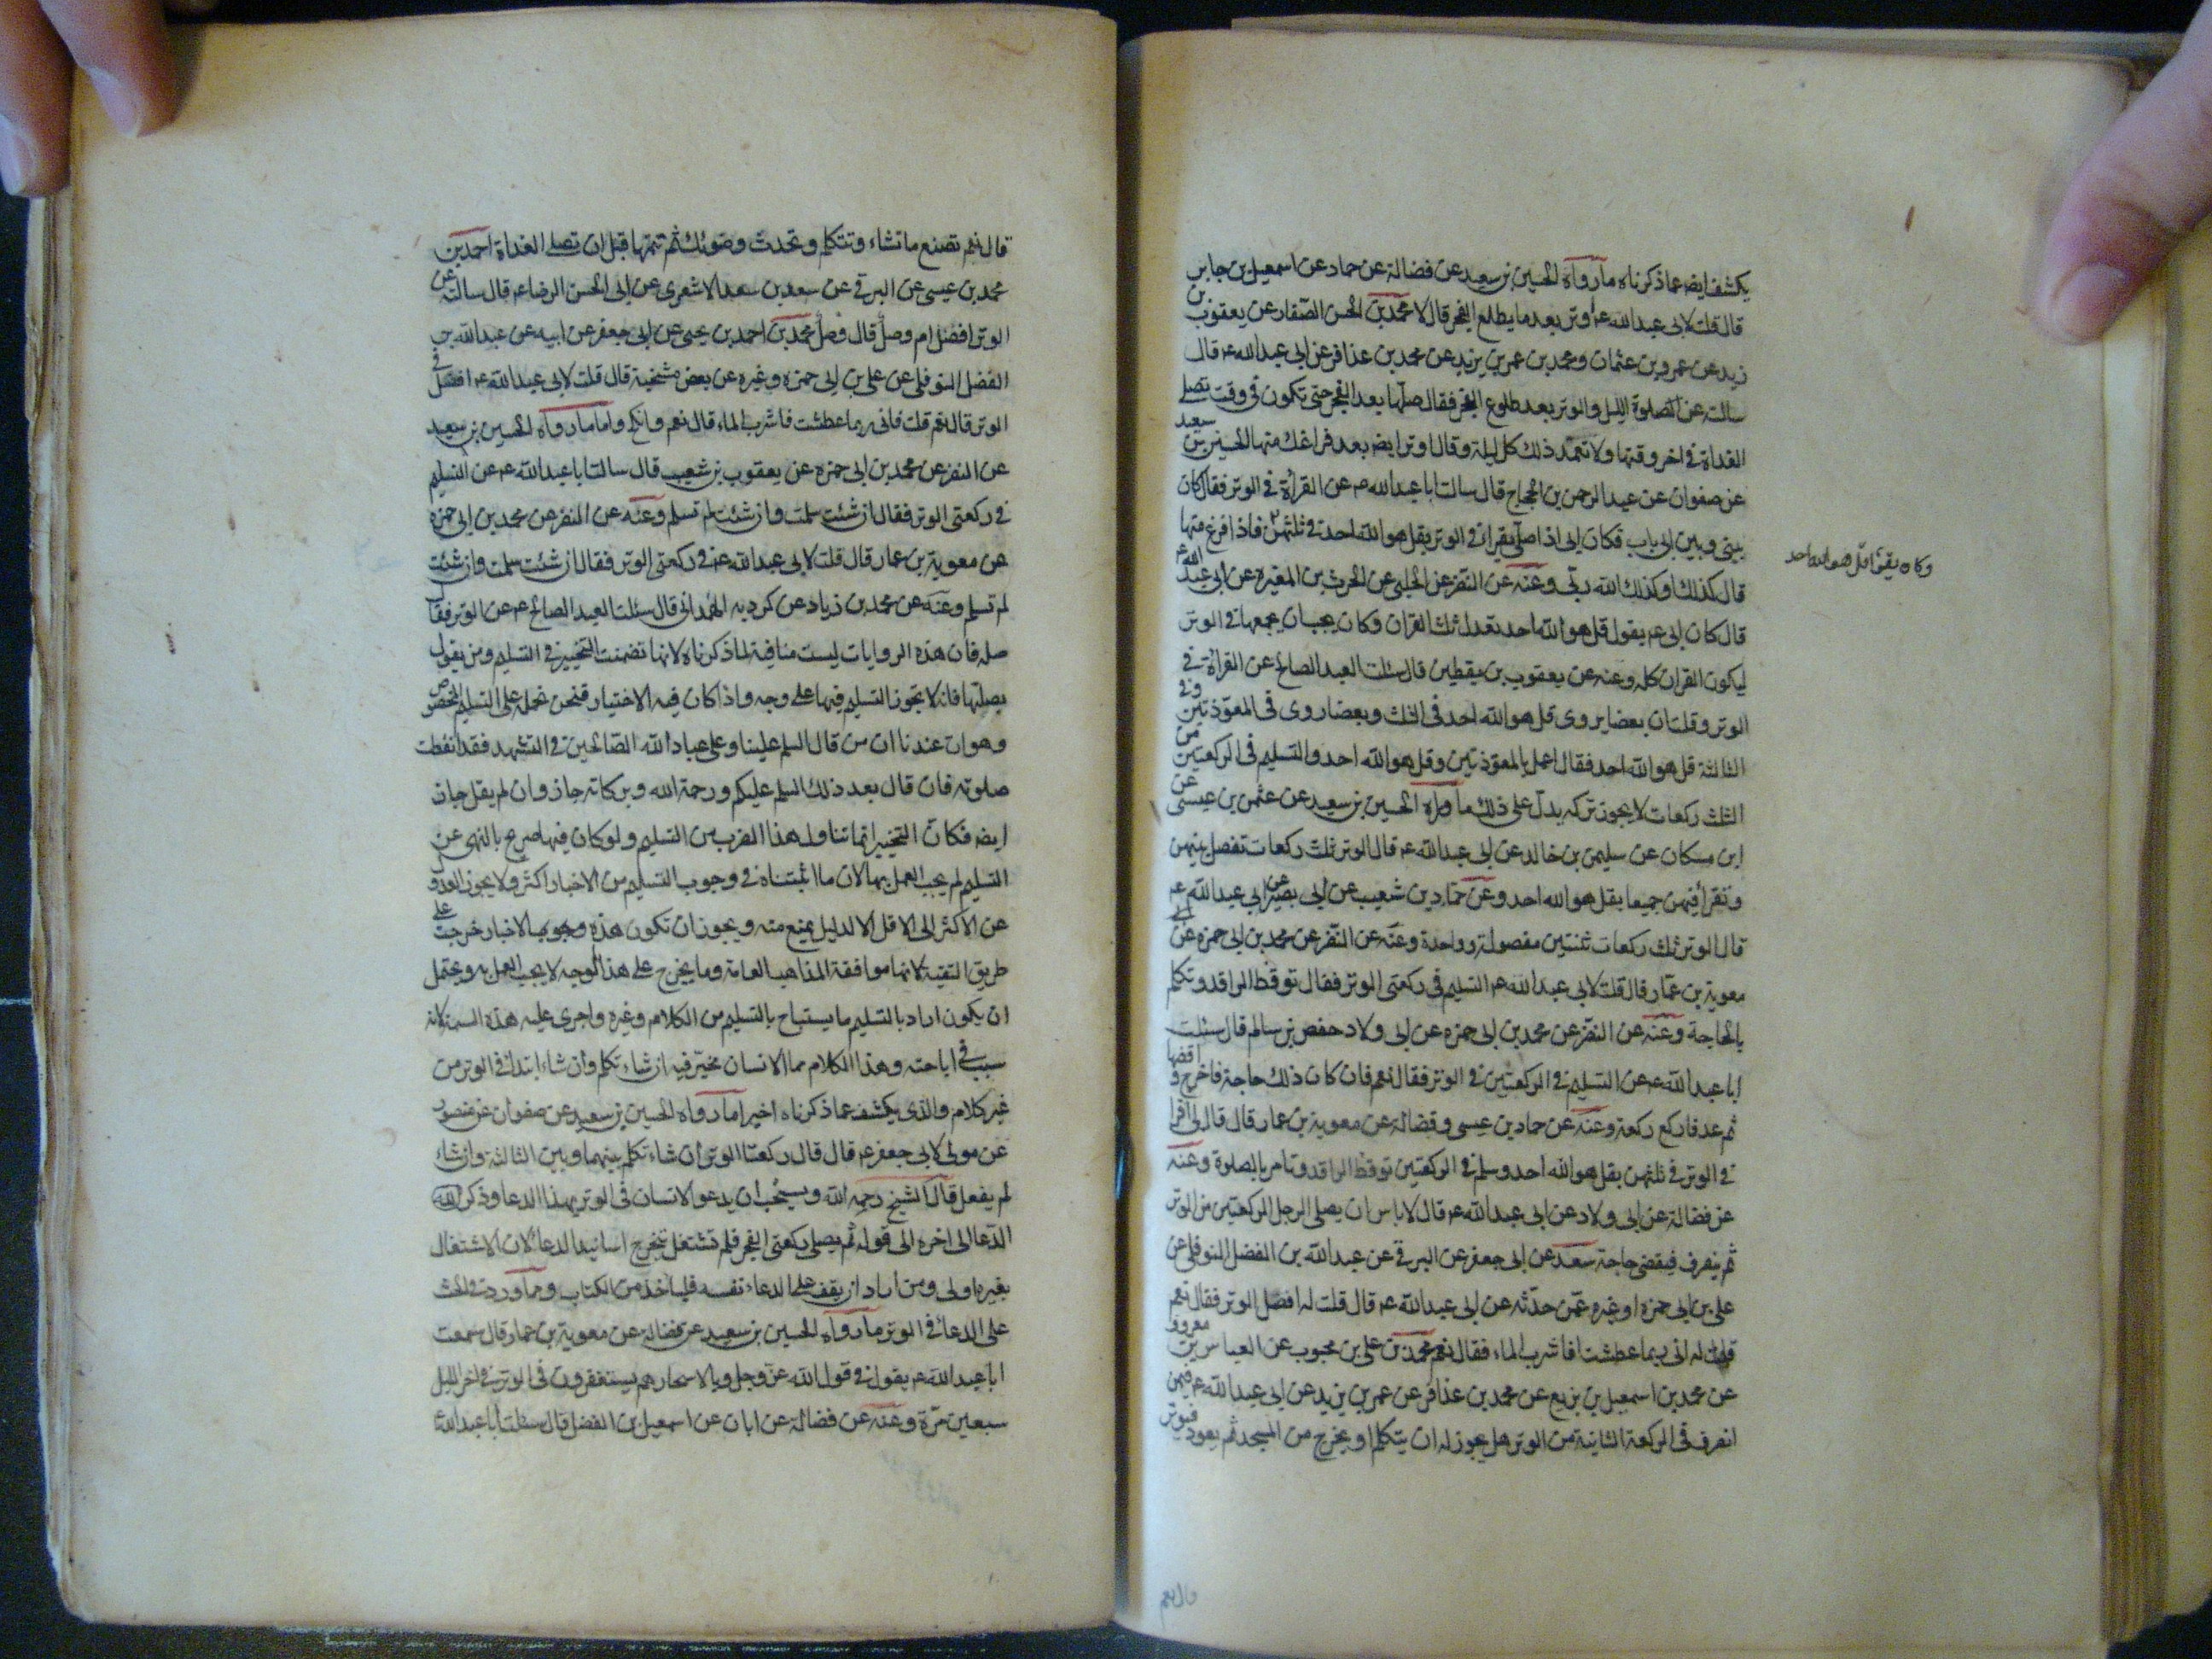 يكشف ايضا عما ذكرناه ما رواه الحسين بن سعيد عن فضالة عن حماد عن اسمعيل بن جابر
قال قلت لابى عبد الله ع اوتر بعد ما يطلع الفجر قال لا محمد بن الحسن الصفار عن يعقوب بن
زيد عن عمرو بن عثمان ومحمد بن عمر بن يزيد عن محمد بن عذافر عن ابى عبد الله ع قال
سالته عن الصلوة الليل والوتر بعد طلوع الفجر فقال صلها بعد الفجر حتى تكون فى وقت تصلى
الغداة فى اخر وقتها ولا تعمد ذلك كل ليلة وقال اوتر ايضا بعد فراغك منها الحسين بن سعيد
عن صفوان عن عبد الرحمن بن الحجاج قال سالت ابا عبد الله ع عن القراءة فى الوتر فقال كان
بينى وبين ابى باب فكان ابى اذا صلى يقرا فى الوتر بقل هو الله احد فى ثلثهن فاذا فرغ منها
وكان يقرا قل هو الله احد
قال كذلك او كذلك الله ربى وعنه عن النضر عن الحلبى عن الحرث بن المغيرة عن ابى عبد الله ع
قال كان ابى ع يقول قل هو الله احد تعدل ثلث القران وكان يحب ان يجمعها فى الوتر
ليكون القران كله وعنه عن يعقوب بن يقطين قال سئلت العبد الصالح عن القراءة فى
الوتر وقلت ان بعضا يروى قل هو الله احد فى الثلث وبعضا روى فى المعوذتين وفى
الثالثة قل هو الله احد فقال اعمل بالمعوذتين وقل هو الله احد والتسليم فى الركعتين من
الثلث ركعات لا يجوز تركه يدل على ذلك ما رواه الحسين بن سعيد عن عثمن بن عيسى عن
ابن مسكان عن سليمن بن خالد عن ابى عبد الله ع قال الوتر ثلث ركعات تفصل بينهن
وتقرا فيهن جميعا بقل هو الله احد وعن حماد بن شعيب عن ابى بصير عن ابى عبد الله ع
قال الوتر ثلث ركعات ثنتين مفصولة وواحدة وعنه عن النضر عن محمد بن ابى حمزه عن
معوية بن عمار قال قلت لابى عبد الله ع التسليم فى ركعتى الوتر فقال توقظ الراقد وتكلم
بالحاجة وعنه عن النضر عن محمد بن ابى حمزه عن ابى ولاد حفص بن سالم قال سئلت
ابا عبد الله ع عن التسليم فى الركعتين فى الوتر فقال نعم فان كان ذلك حاجة فاخرج واقضها
ثم عد فاركع ركعة وعنه عن حماد بن عيسى وفضالة عن معوية بن عمار قال قال لى اقرا
فى الوتر فى ثلثهن بقل هو الله احد وسلم فى الركعتين توقظ الراقد وتامر بالصلوة وعنه
عن فضالة عن ابى ولاد عن ابى عبد الله ع قال لا باس ان يصلى الرجل الركعتين من الوتر
ثم ينصرف فيقضى حاجة سعد عن ابى جعفر عن البرقى عن عبد الله بن الفضل النوفلى عن
على بن ابى حمزه او غيره عمن حدثه عن ابى عبد الله ع قال قلت له افصل الوتر فقال نعم
قلت له انى ربما عطشت افاشرب الماء فقال نعم محمد بن على بن محبوب عن العباس بن معروف
عن محمد بن اسمعيل بن بزيع عن محمد بن عذافر عن عمر بن يزيد عن ابى عبد الله ع فيمن
انصرف فى الركعة الثانية من الوتر هل يجوز له ان يتكلم او يخرج من المسجد ثم يعود فيوتر
قال نعم
قال نعم تصنع ما تشاء وتتكلم وتحدث وضوئك ثم تتمها قبل ان تصلى الغداة احمد بن
محمد بن عيسى عن البرقى عن سعد بن سعد الاشعرى عن ابى الحسن الرضا ع قال سالته عن
الوتر افصل ام وصل قال فصل محمد بن احمد بن يحيى عن ابى جعفر عن ابيه عن عبد الله بن
الفضل النوفلى عن على بن ابى حمزه وغيره عن بعض مشيخته قال قلت لابى عبد الله ع افصل فى
الوتر قال نعم قلت فانى ربما عطشت فاشرب الماء قال نعم وانكح واما ما رواه الحسين بن سعيد
عن النضر عن محمد بن ابى حمزه عن يعقوب بن شعيب قال سالت ابا عبد الله ع عن التسليم
فى ركعتى الوتر فقال ان شئت سلمت وان شئت لم تسلم وعنه عن النضر عن محمد بن ابى حمزه
عن معوية بن عمار قال قلت لابى عبد الله ع فى ركعتى الوتر فقال ان شئت سلمت وان شئت
لم تسلم وعنه عن محمد بن زياد عن كردويه الهمدانى قال سئلت العبد الصالح ع عن الوتر فقال
صله فان هذه الروايات ليست منافية لما ذكرناه لانها تضمنت التخيير فى التسليم ومن يقول
بصلتها فانه لا يجوز التسليم فيها على وجه واذا كان فيه الاختيار فنحن نحمله على التسليم المخصوص
وهو ان عندنا ان من قال السلم علينا وعلى عباد الله الصالحين فى التشهد فقد انقطعت
صلوته فان قال بعد ذلك السلم عليكم ورحمة الله وبركاته جاز وان لم يقل جاز
ايضا فكان التخيير انما تناول هذا الضرب من التسليم ولو كان فيها صرح بالنهى عن
التسليم لم يجب العمل بها لان ما اثبتناه فى وجوب التسليم من الاخبار اكثر ولا يجوز العدول
عن الاكثر الى الاقل الا لدليل يمنع منه ويجوز ان تكون هذه الاخبار خرجت على
طريق التقية لانها موافقة المذاهب العامة وما يخرج على هذا الوجه لا يجب العمل به ويحتمل
ان يكون اراد بالتسليم ما يستباح بالتسليم من الكلام وغيره واجرى عليه هذه السمة لانه
سبب فى اباحته وهذا الكلام مما الانسان مخير فيه ان شاء تكلم وان شاء ابتدا فى الوتر من
غير كلام والذى يكشف عما ذكرناه اخيرا ما رواه الحسين بن سعيد عن صفوان عن منصور
عن مولى لابى جعفر ع قال قال ركعتا الوتر ان شاء تكلم بينهما وبين الثالثة وان شاء
لم يفعل قال الشيخ رحمه الله ويستحب ان يدعو الانسان فى الوتر بهذا الدعا وذكر
الدعا الى اخره الى قوله ثم يصلى ركعتى الفجر فلم نشتغل بتخرج اسانيد الدعا لان الاشتغال
بغيره اولى ومن اراد ان يقف على الدعاء نفسه فلياخذ من الكتاب ومما ورد فى الحث
على الدعا فى الوتر ما رواه الحسين بن سعيد عن فضالة عن معوية بن عمار قال سمعت
ابا عبد الله ع يقول فى قول الله عز وجل وبالاسحار هم يستغفرون فى الوتر فى اخر الليل
سبعين مرة وعنه عن فضالة عن ابان عن اسمعيل بن الفضل قال سئلت ابا عبد الله ع